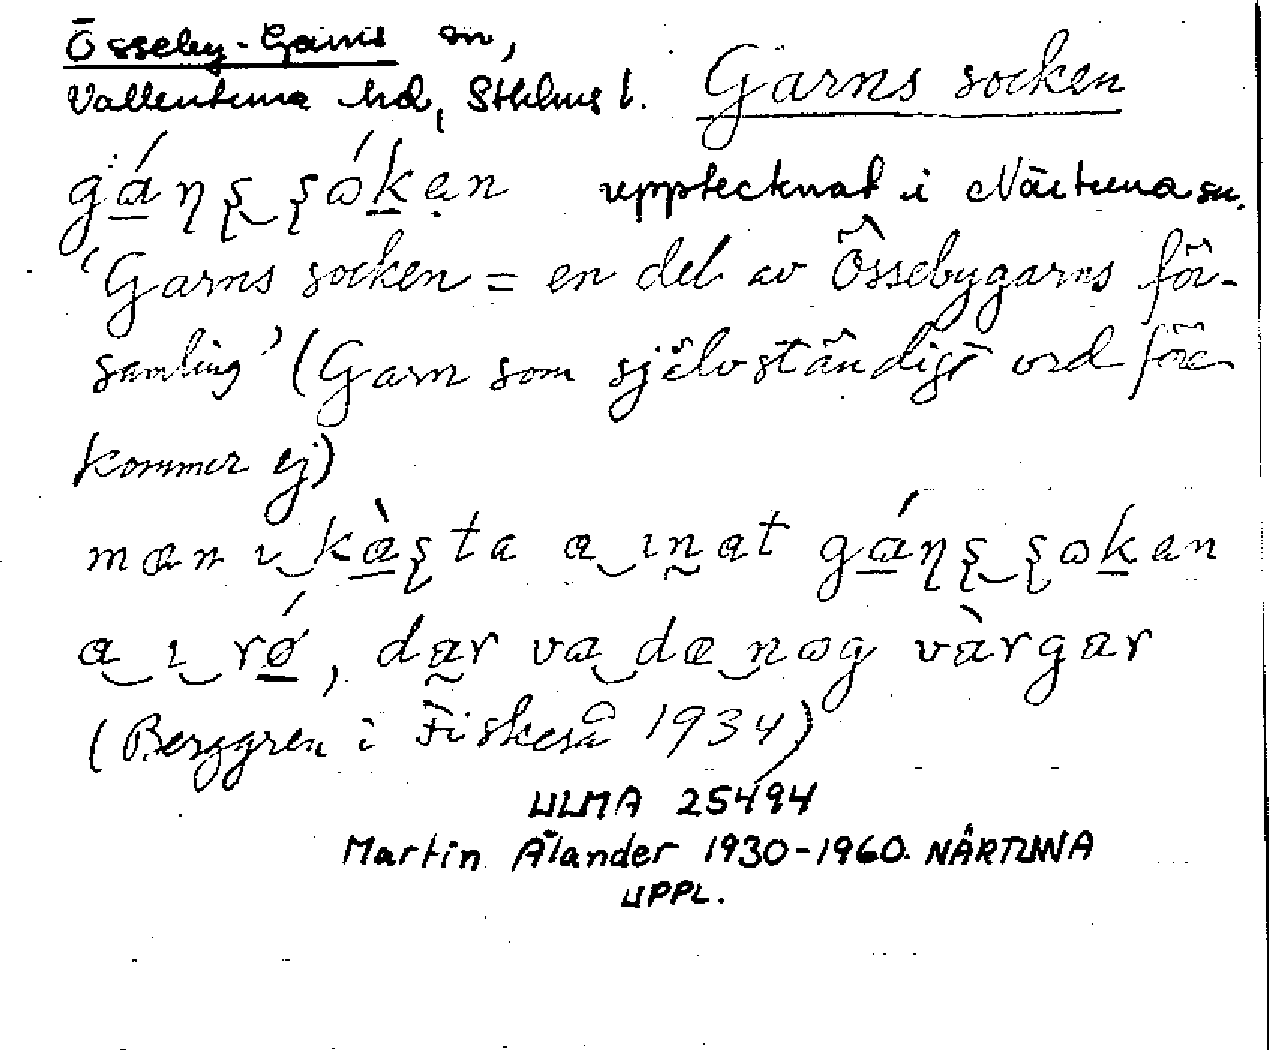 Össeby-Garns sn,
Vallentuna hd, Sthlms l. Garns socken
gáṇṣ ṣókan upptecknat i Närtuna sn.
'Garns socken = en del av Össebygarns för-
samling' (Garn som självständigt ord före-
kommer ej)
mæn ı kàṣta a ınat gáṇṣ ṣokan
a ı rǿ, dær va dæ nog vàrgar
(Berggren i Fiskeså 1934)
ULMA 25494
Martin Ålander 1930-1960. NÄRTUNA
UPPL.